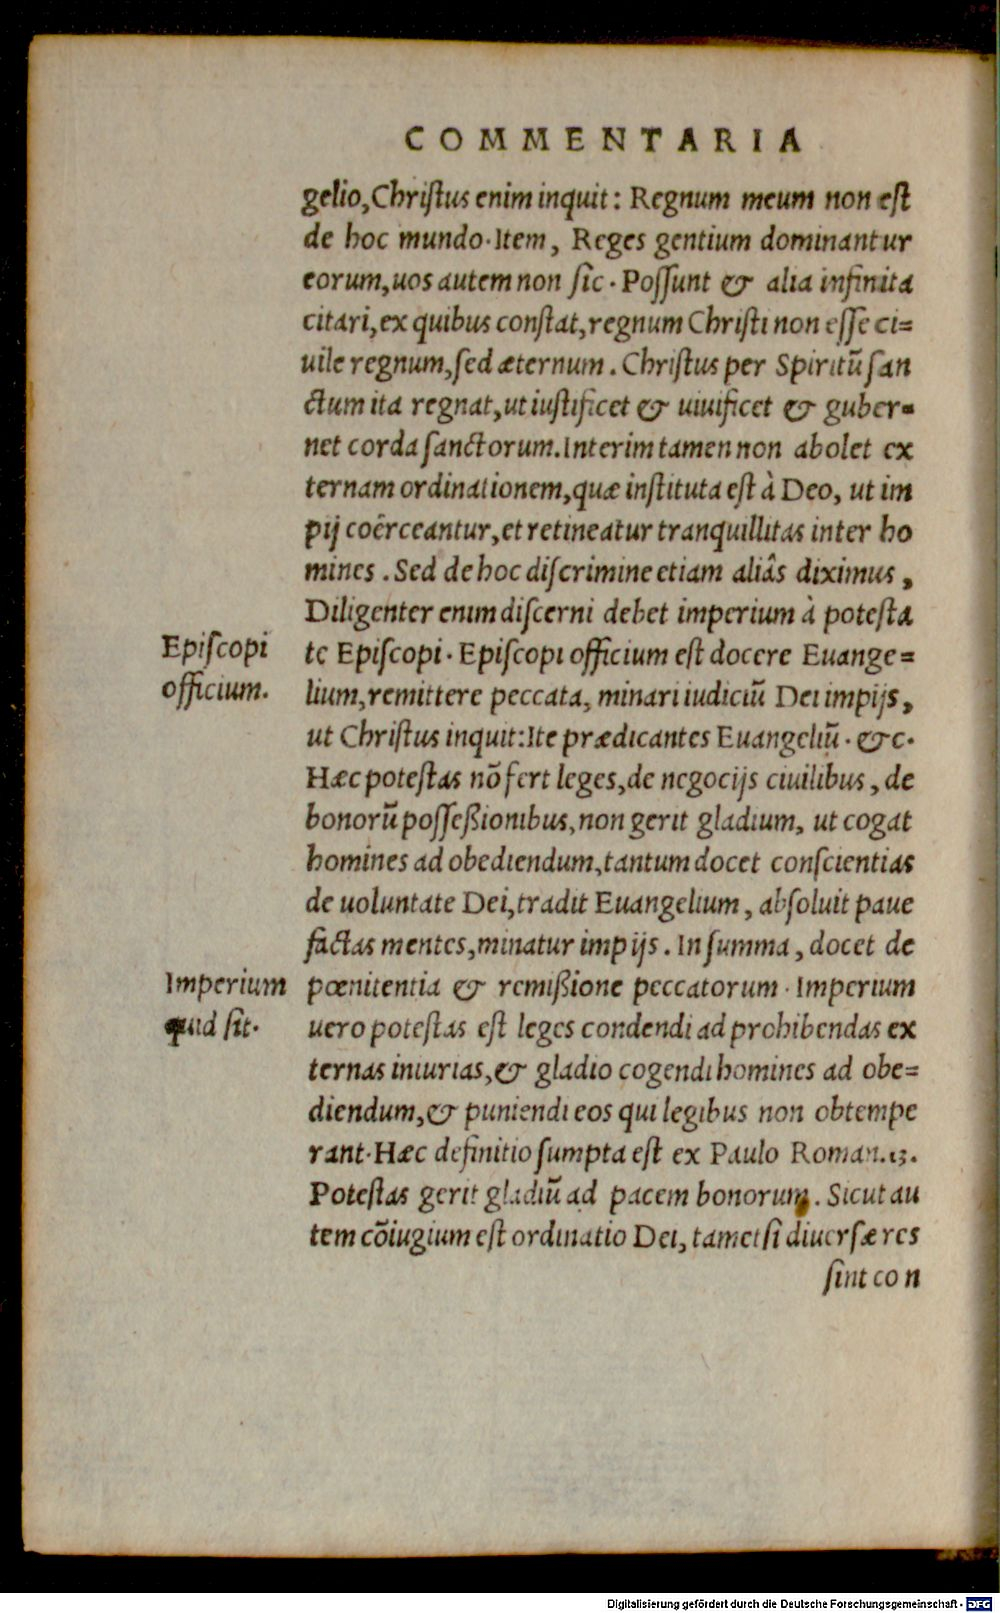 COMMENTARIA
gelio, Chriſtus enim inquit: Regnum meum non eſt
de hoc mundo. Item, Reges gentium dominantur
eorum, uos autem non ſic. Poſſunt & alia infinita
citari, ex quibus conſtat, regnum Chriſti non eſſe ci=
uile regnum, ſed æternum. Chriſtus per Spiritũ ſan
ctum ita regnat, ut iuſtificet & uiuificet & guber=
net corda ſanctorum. Interim tamen non abolet ex
ternam ordinationem, quæ inſtituta eſt à Deo, ut im
pij coërceantur, et retineatur tranquillitas inter ho
mines. Sed de hoc diſcrimine etiam aliâs diximus,
Diligenter enim diſcerni debet imperium à poteſta
Epiſcopi
officium.
te Epiſcopi. Epiſcopi officium eſt docere Euange=
lium, remittere peccata, minari iudiciũ Dei impijs,
ut Chriſtus inquit: Ite prædicantes Euangeliũ. &c.
Hæc poteſtas nõ fert leges, de negocijs ciuilibus, de
bonorũ poſſeßionibus, non gerit gladium, ut cogat
homines ad obediendum, tantum docet conſcientias
de uoluntate Dei, tradit Euangelium, abſoluit paue
factas mentes, minatur impijs. In ſumma, docet de
Imperium
quid ſit.
pœnitentia & remißione peccatorum. Imperium
uero poteſtas eſt leges condendi ad prohibendas ex
ternas iniurias, & gladio cogendi homines ad obe=
diendum, & puniendi eos qui legibus non obtempe
rant. Hæc definitio ſumpta eſt ex Paulo Roman. 13.
Poteſtas gerit gladiũ ad pacem bonorum. Sicut au
tem cõiugium eſt ordinatio Dei, tametſi diuerſæ res
ſint con
Digitalisierung gefördert durch die Deutsche Forschungsgemeinschaft - DFG